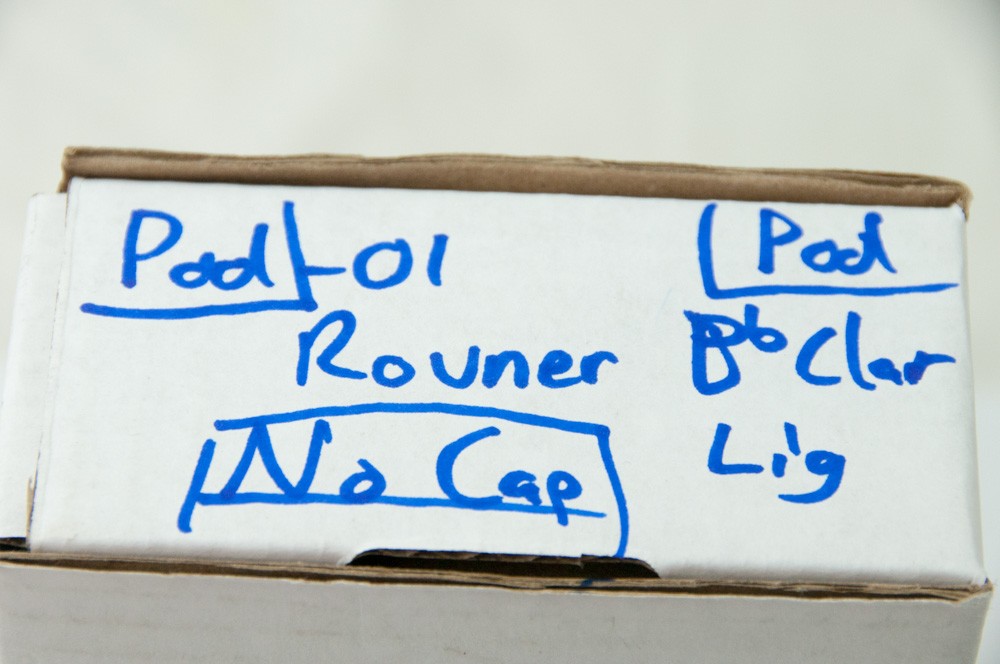 Pad-01
Rouner
No Cap
Pad
Bb Clar
Lig